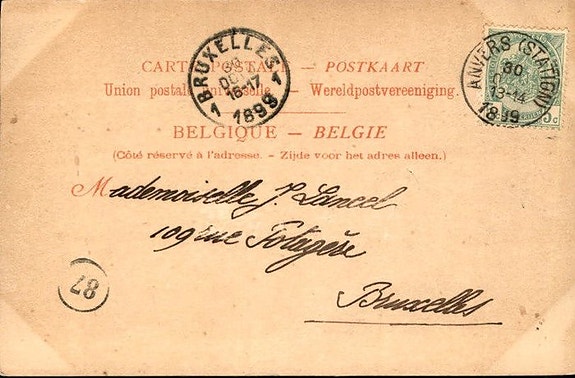 CARTE POSTALE — POSTKAART
Union postale universelle. — Wereldpostvereeniging.
BELGIQUE — BELGIE
(Côté réservé à l'adresse. - Zijde voor het adres alleen.)
BRUXELLES
16-17
1 1899 1
ANVERS (STATION)
30
13-14
1899
5c
Mademoiselle J. Lancel
109 rue Potagère
Bruxelles
87